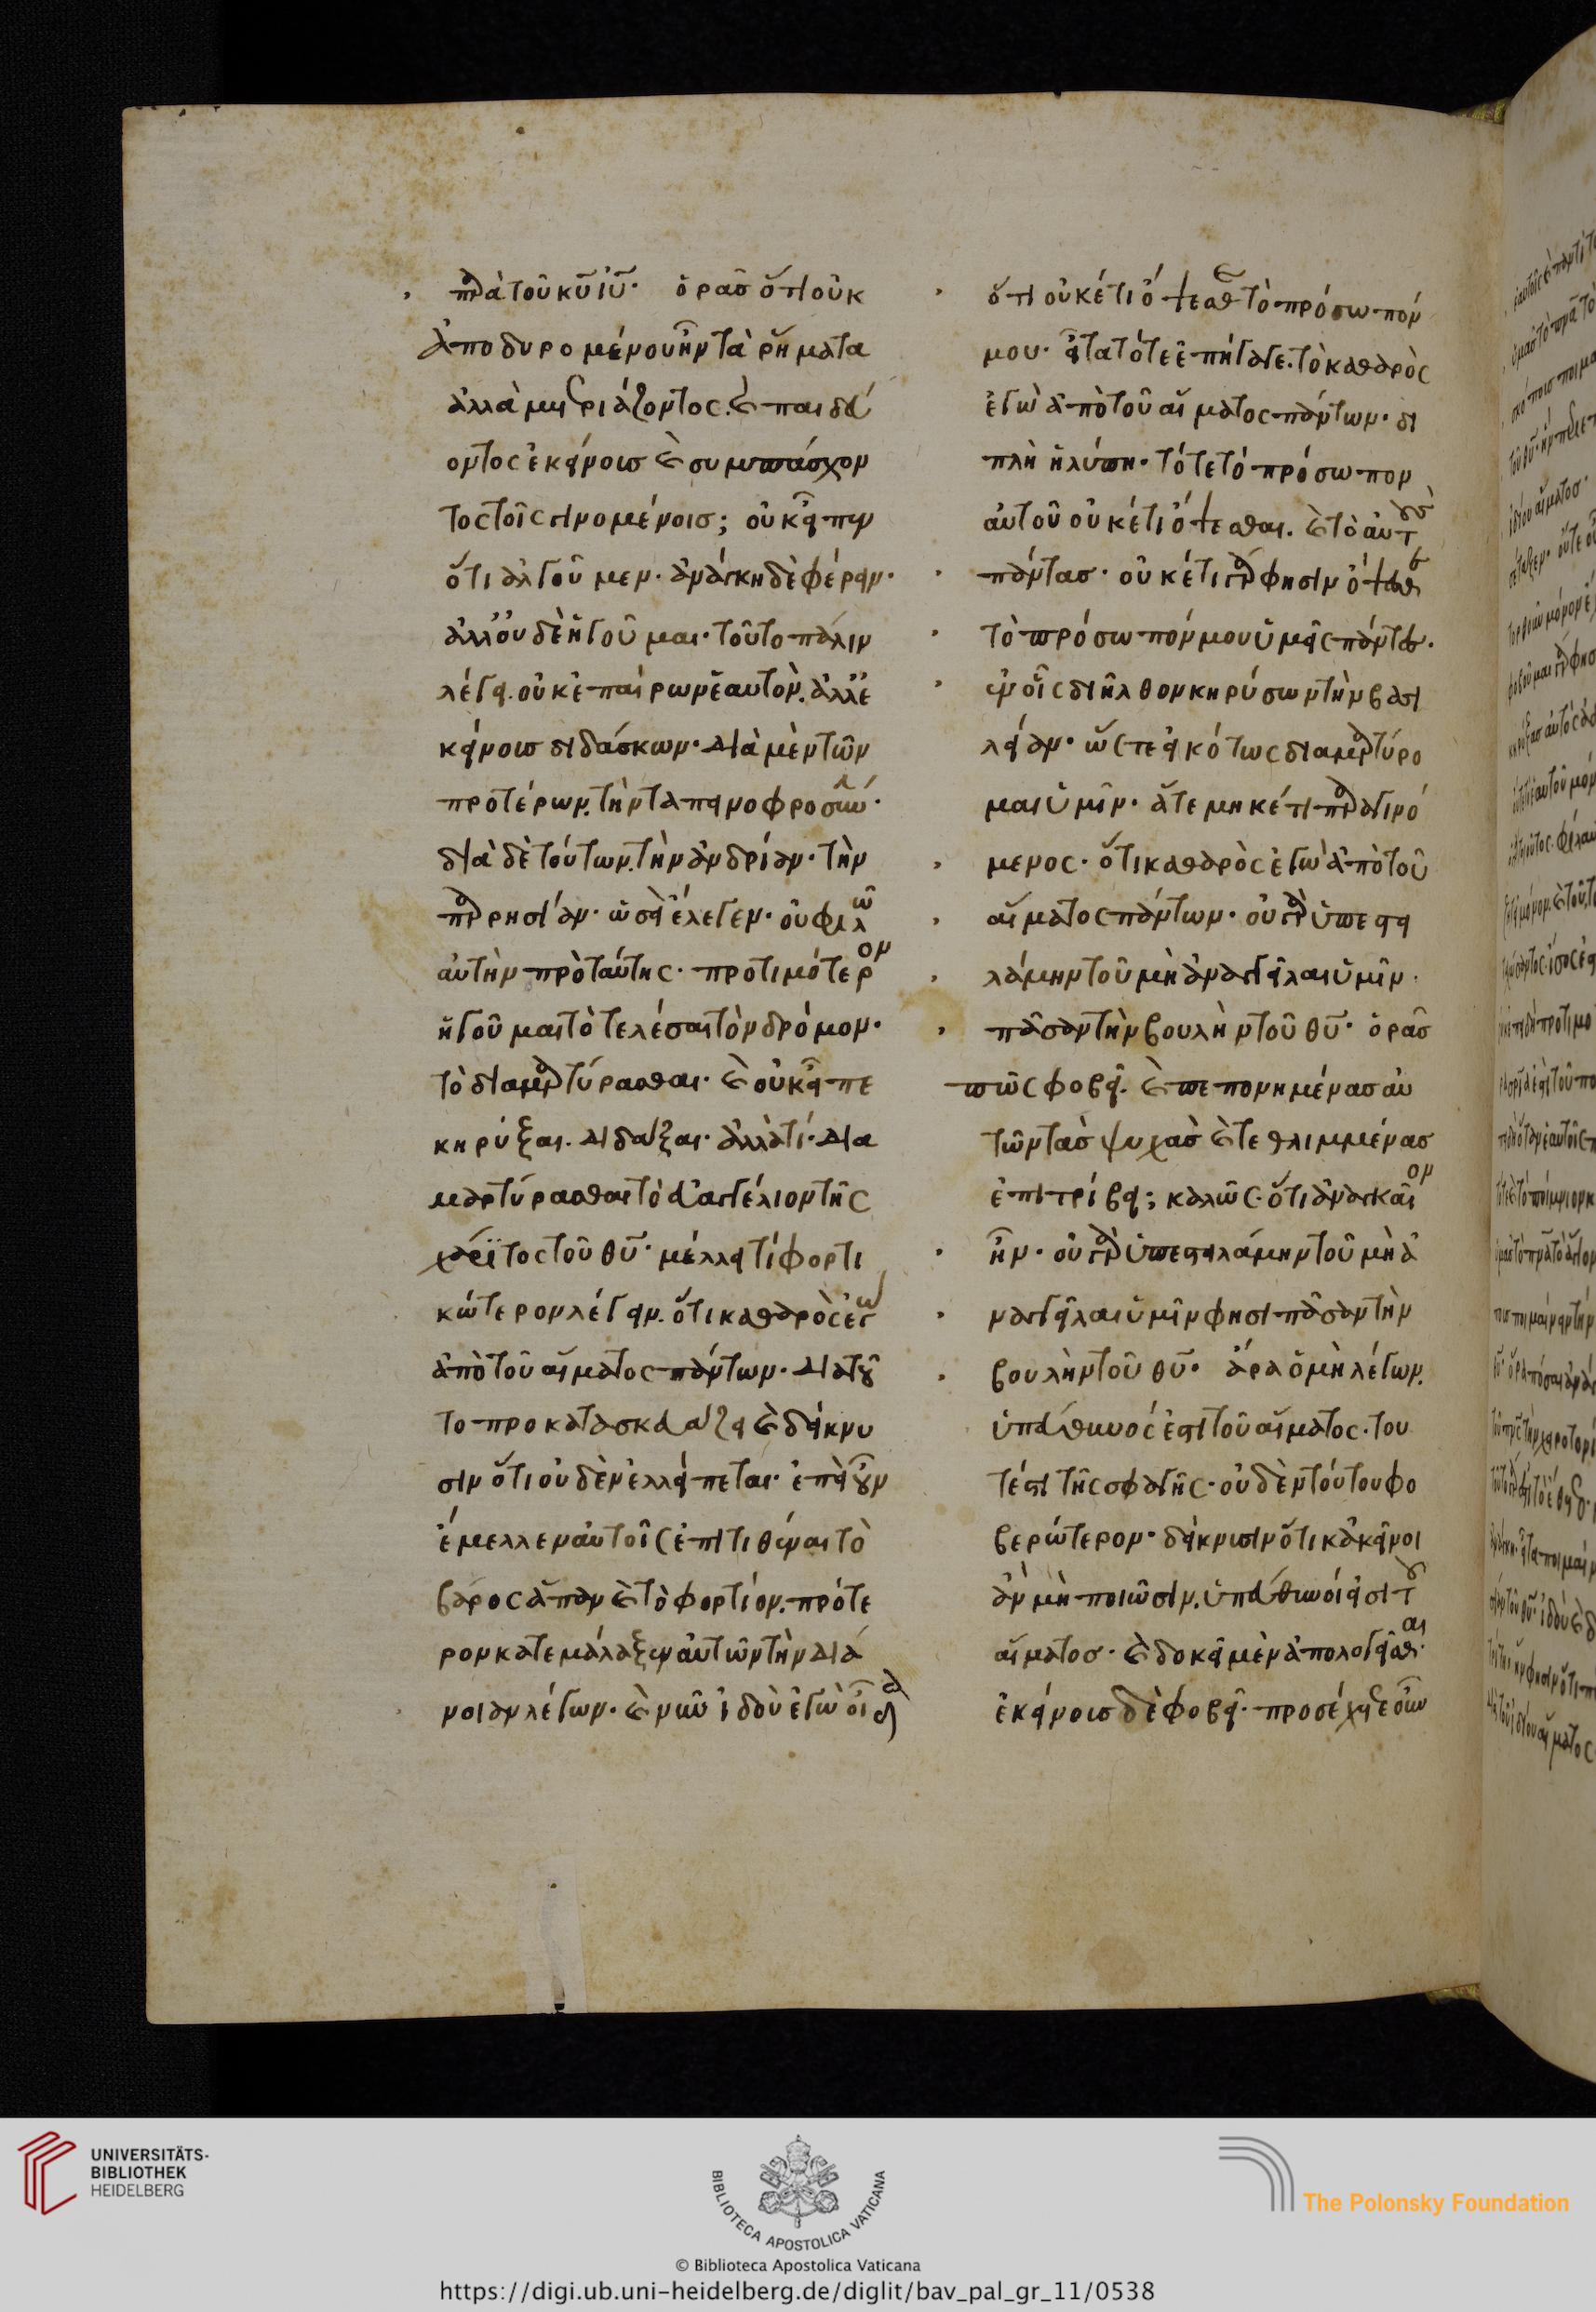 πρὰ τοῦ κυ̅ ιυ̅· ὁρᾶσ ὅτι οὐκ
ἀποδυρομένου ἦν τὰ ῥήματα
ἀλλὰ μετριάζοντος. καὶ παιδεύ
οντος ἐκείνοισ καὶ συμπάσχον
τος τοῖς γινομένοισ; οὐκ εἶπεν
ὅτι ἀλγοῦμεν· ἀνάγκη δὲ φέρειν·
ἀλλ' οὐδὲ ἡγοῦμαι· τοῦτο πάλιν
λέγει. οὐκ ἐπαίρων ἑαυτὸν. ἀλλ' ἐ
κείνοισ διδάσκων· διὰ μὲν τῶν
προτέρων. τὴν ταπεινοφροσύνην·
διὰ δὲ τούτων. τὴν ἀνδρίαν· τὴν
παρρησίαν· ὡσεὶ ἔλεγεν· οὐ φιλῶ
αὐτὴν πρὸ ταύτης· προτιμότερον
ἡγοῦμαι τὸ τελέσαι τὸν δρόμον·
τὸ διαμαρτύρασθαι· καὶ οὐκ εἶπε
κηρύξαι. διδάξαι· ἀλλὰ τί· δια
μαρτύρασθαι τὸ εὐαγγέλιον τῆς
χάριτος τοῦ θυ̅· μέλλει τί φορτι
κώτερον λέγειν. ὅτι καθαρὸς ἐγὼ
ἀπὸ τοῦ αἵματος πάντων· διατοῦ
το προκατασκευάζει καὶ δείκνυ
σιν ὅτι οὐδὲν ἐλλείπεται· ἐπεὶ οὖν
ἔμελλεν αὐτοῖς ἐπιτιθέναι τὸ
βάρος ἅπαν καὶ τὸ φορτίον. πρότε
ρον κατεμάλαξεν αὐτῶν τὴν διά
νοιαν λέγων· καὶ νῦν ἰδοὺ ἐγὼ οἶδα
ὅτι οὐκέτι ὄψεσθε τὸ πρόσωπόν
μου· εἶτα τότε ἐπήγαγε. τὸ καθαρὸς
ἐγὼ ἀπὸ τοῦ αἵματος πάντων· δι
πλὴ ἡ λύπη· τό τε τό πρόσωπον
αὐτοῦ οὐκέτι ὄψεσθαι. καὶ τὸ αὐτοὺς
πάντασ· οὐκέτι γὰρ φησὶν ὄψεσθε
τὸ πρόσωπόν μου ὑμεῖς πάντες.
ἐν οἷς διῆλθον κηρύσων τὴν βασι
λείαν· ὥστε εἰκότως διαμαρτύρο
μαι ὑμῖν· ἅτε μηκέτι παραγινό
μενος· ὅτι καθαρὸς ἐγὼ ἀπὸ τοῦ
αἵματος πάντων· οὐ γὰρ ὑπεστει
λάμην τοῦ μὴ ἀναγγεῖλαι ὑμῖν·
πᾶσαν τὴν βουλὴν τοῦ θυ̅· ὁρᾶσ
πῶς φοβεῖ. καὶ πεπονημένασ αὐ
τῶν τὰσ ψυχὰσ καὶ τεθλιμμένασ
ἐπιτρίβει; καλῶς. ὅτι ἀναγκαῖον
ἦν· οὐ γὰρ ὑπεστειλάμην τοῦ μὴ ἀ
ναγγεῖλαι ὑμῖν φησι πᾶσαν τὴν
βουλὴν τοῦ θυ̅· ἄρα ὁ μὴ λέγων.
ὑπεύθυνος ἐστι τοῦ αἵματος· του
τέστι τῆς σφαγῆς· οὐδὲν τούτου φο
βερώτερον· δείκνυσιν ὅτι κἀκεῖνοι
ἂν μὴ ποιῶσιν. ὑπεύθυνοί εἰσι τοῦ
αἵματοσ· καὶ δοκεῖ μὲν ἀπολογεῖσθαι·
ἐκείνοισ δὲ φοβεῖ· προσέχετε οὖν
UNIVERSITÄTS-
BIBLIOTHEK
HEIDELBERG
BIBLIOTECA APOSTOLICA VATICANA
The Polonsky Foundation
© Biblioteca Apostolica Vaticana
https://digi.ub.uni-heidelberg.de/diglit/bav_pal_gr_11/0538